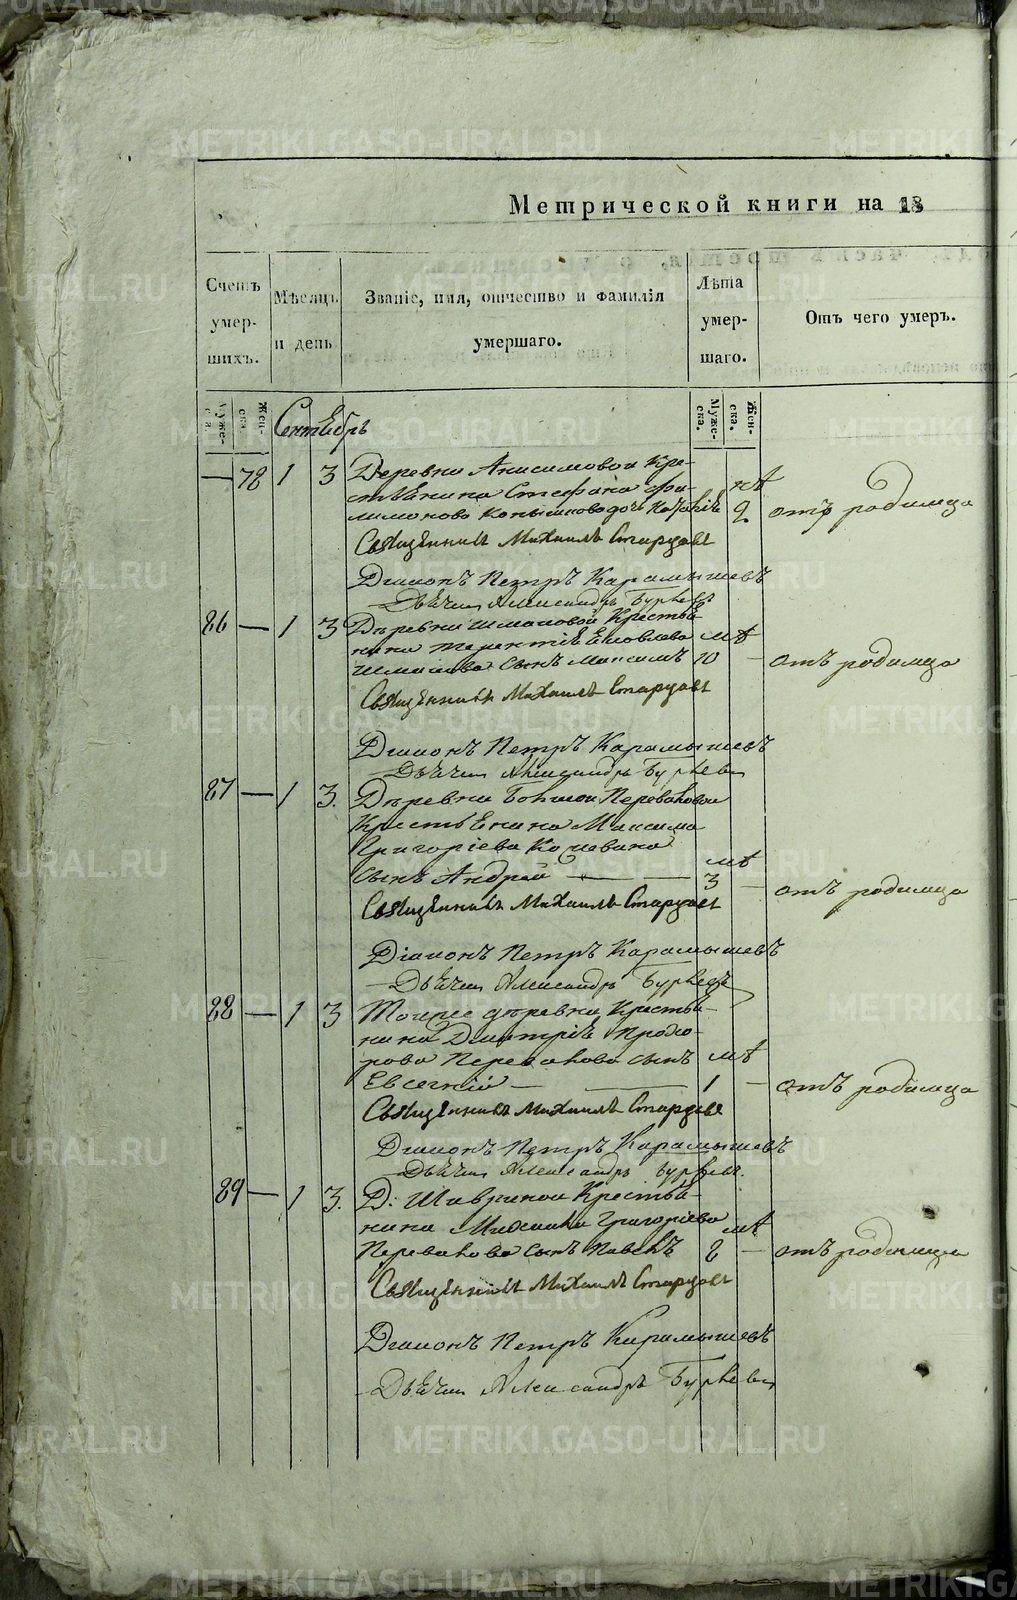 Метрической книги на 18
Счетъ умершихъ.
Мѣсяцъ и день
Званіе, имя, отчество и фамилія умершаго.
Лѣта умершаго.
Отъ чего умеръ.
Муже-ска.
Жен-ска
Сентябрь
Муже-ска.
Жен-ска.
78 1 3 Деревни Анисимовой Кре-
стьянина Стефана Фи-
лимонова дочь 2 отъ родимца
Священникъ Михаилъ Стардовъ
Діаконъ Петръ Карамышевъ
Дьячекъ Александръ
86 — 1 3 Деревни Шмаковой Крестья-
нина Терентія Яковлева мѣ
Шмакова сынъ Максимъ 10 — отъ родимца
Священникъ Михаилъ Стардовъ
Діаконъ Петръ Карамышевъ
Дьячекъ Александръ
87 — 1 3. Деревни Большой Переваловой
Крестьянина Максима
Григоріева
мѣ
сынъ Андрей — 3 — отъ родимца
Священникъ Михаилъ Стардовъ
Діаконъ Петръ Карамышевъ
Дьячекъ Александръ
88 — 1 3 Тоиже деревни Крестья-
нина Димитрія Прохо-
рова Перевалова сынъ мѣ
Евсегній — 1 — отъ родимца
Священникъ Михаилъ Стардовъ
Діаконъ Петръ Карамышевъ
Дьячекъ Александръ
89 — 1 3. Д. Шавриной Крестья-
нина Григоріева мѣ
Перевалова сынъ Павелъ 2 — отъ родимца
Священникъ Михаилъ Стардовъ
Діаконъ Петръ Карамышевъ
Дьячекъ Александръ
METRIKI.GASO-URAL.RU